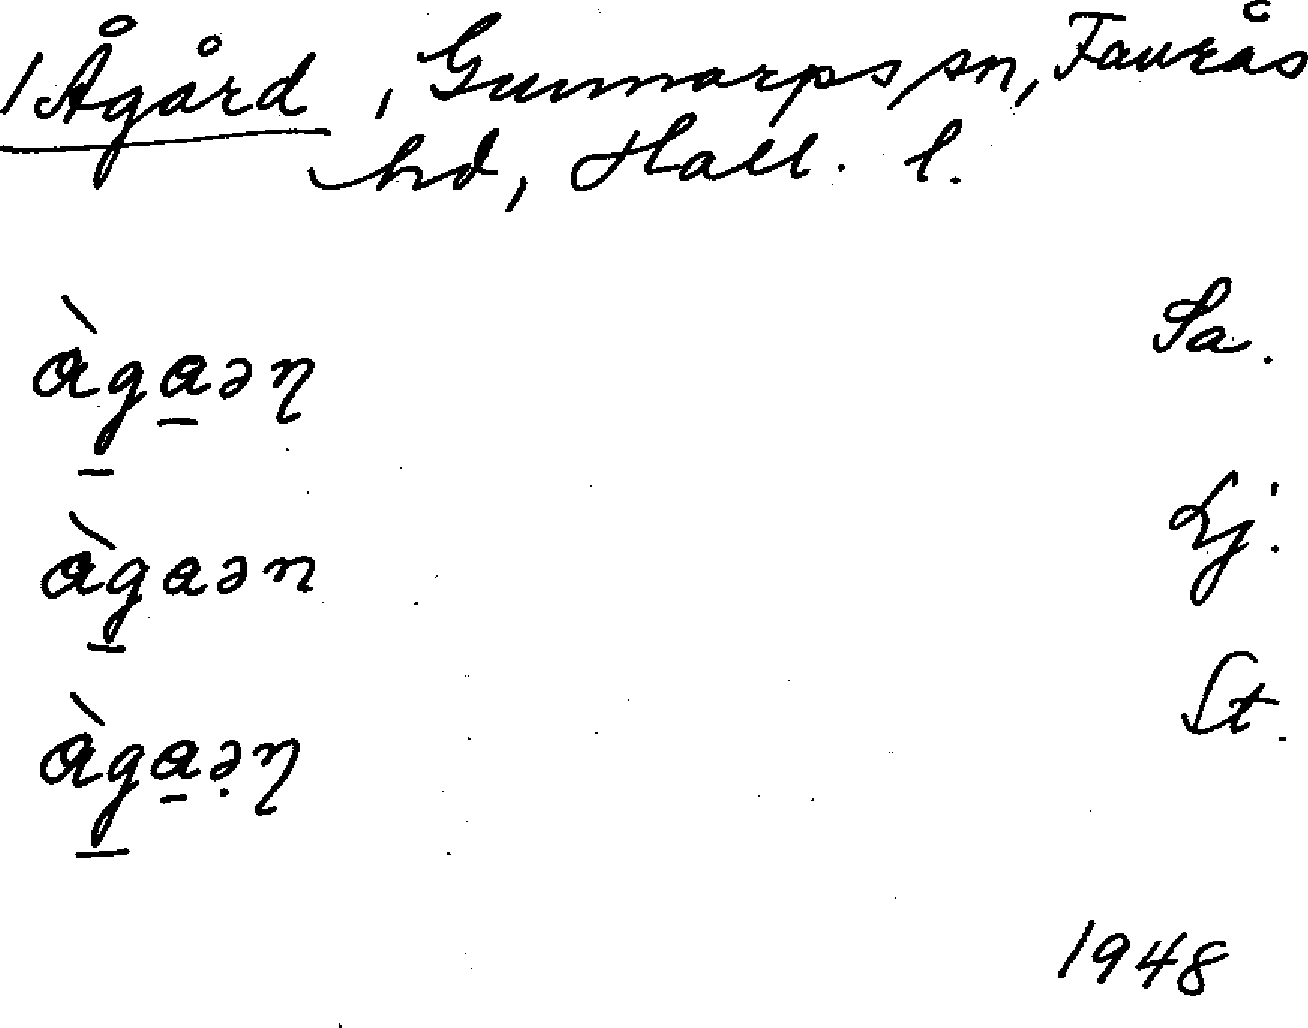 1 Ågård, Gunnarps sn, Faurås
hd, Hall. l.
àga̱əŋ Sa.
àgaən Lj.
àga̱ə̣ŋ St.
1948